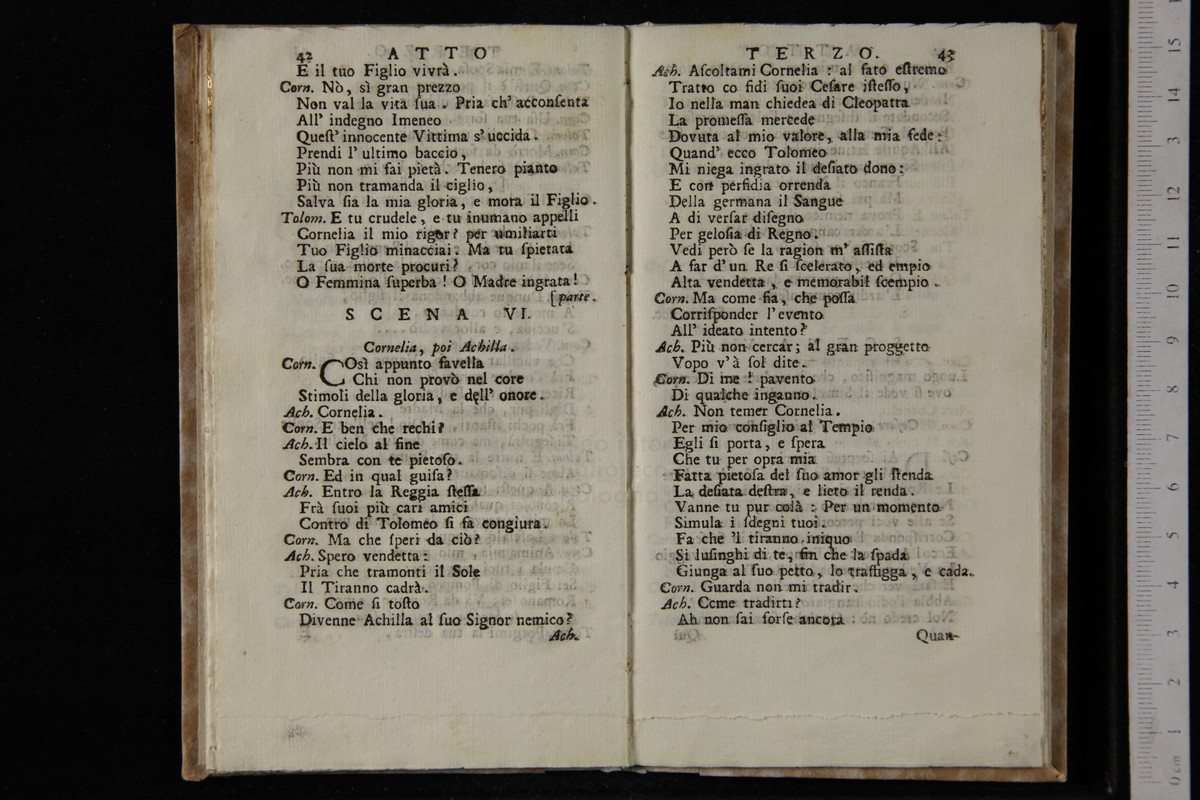 42 ATTO
E il tuo Figlio vivrà.
Corn. Nò, sì gran prezzo
Non val la vita ſua. Pria ch' acconſenta
All' indegno Imeneo
Queſt' innocente Vittima s' uccida.
Prendi l' ultimo baccio,
Più non mi fai pietà. Tenero pianto
Più non tramanda il ciglio,
Salva ſia la mia gloria, e mora il Figlio.
Tolom. E tu crudele, e tu inumano appelli
Cornelia il mio rigor? per umiliarti
Tuo Figlio minacciai. Ma tu ſpietata
La ſua morte procuri?
O Femmina ſuperba! O Madre ingrata!
[parte.
SCENA VI.
Cornelia, poi Achilla.
Corn. COsì appunto favella
Chi non provò nel core
Stimoli della gloria, e dell' onore.
Ach. Cornelia.
Corn. E ben che rechi?
Ach. Il cielo al fine
Sembra con te pietoſo.
Corn. Ed in qual guiſa?
Ach. Entro la Reggia ſteſſa
Frà ſuoi più cari amici
Contro di Tolomeo ſi fà congiura.
Corn. Ma che ſperi da ciò?
Ach. Spero vendetta:
Pria che tramonti il Sole
Il Tiranno cadrà.
Corn. Come ſi toſto
Divenne Achilla al ſuo Signor nemico?
Ach.
TERZO. 43
Ach. Aſcoltami Cornelia: al fato eſtremo
Tratto co fidi ſuoi Ceſare iſteſſo,
Io nella man chiedea di Cleopatra
La promeſſa mercede
Dovuta al mio valore, alla mia fede:
Quand' ecco Tolomeo
Mi niega ingrato il deſiato dono:
E con perfidia orrenda
Della germana il Sangue
A di verſar diſegno
Per geloſia di Regno.
Vedi però ſe la ragion m' aſſiſta
A far d' un Re ſi ſcelerato, ed empio
Alta vendetta, e memorabil ſcempio.
Corn. Ma come ſia, che poſſa
Corriſponder l' evento
All' ideato intento?
Ach. Più non cercar; al gran proggetto
Vopo v' à ſol di te.
Corn. Di me! pavento
Di qualche inganno.
Ach. Non temer Cornelia.
Per mio conſiglio al Tempio
Egli ſi porta, e ſpera
Che tu per opra mia
Fatta pietoſa del ſuo amor gli ſtenda
La deſiata deſtra, e lieto il renda.
Vanne tu pur colà: Per un momento
Simula i ſdegni tuoi.
Fa che 'l tiranno iniquo
Si luſinghi di te, fin che la ſpada
Giunga al ſuo petto, lo traffigga, e cada.
Corn. Guarda non mi tradir.
Ach. Come tradirti?
Ah non ſai forſe ancora:
Quan-